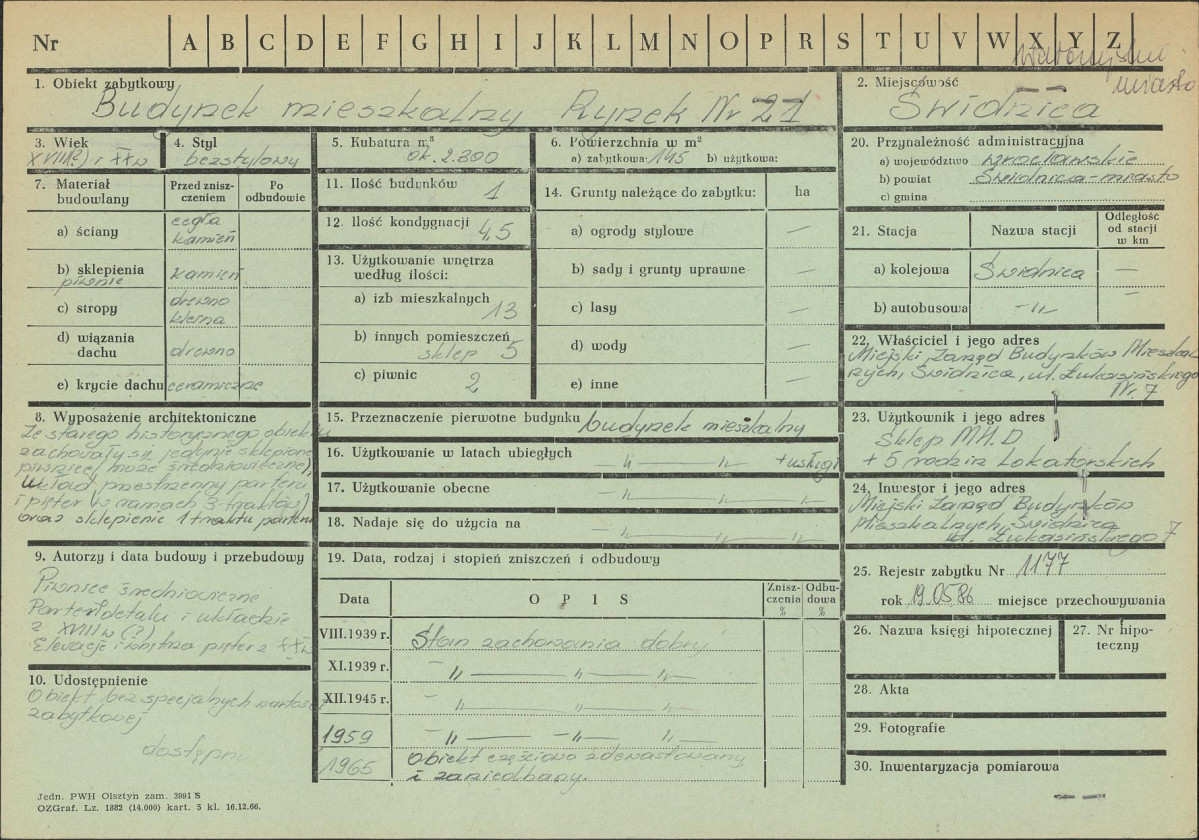 Nr A B C D E F G H I J K L M N O P R S T U V W X Y Z
miasto
1. Obiekt zabytkowy
Budynek mieszkalny Rynek Nr 21
2. Miejscowość
Świdnica
3. Wiek
XVIII(?) i XXw
4. Styl
bezstylowy
5. Kubatura m³
ok. 2.800
6. Powierzchnia w m²
a) zabytkowa: 145 b) użytkowa:
20. Przynależność administracyjna
a) województwo wrocławskie
b) powiat Świdnica-miasto
c) gmina
7. Materiał budowlany
Przed zniszczeniem
Po odbudowie
a) ściany cegła kamień
b) sklepienia piwnic kamień
c) stropy drewno
d) wiązania dachu drewno
e) krycie dachu ceramiczne
11. Ilość budynków 1
12. Ilość kondygnacji 4,5
13. Użytkowanie wnętrza według ilości:
a) izb mieszkalnych 13
b) innych pomieszczeń sklep 5
c) piwnic 2
14. Grunty należące do zabytku: ha
a) ogrody stylowe —
b) sady i grunty uprawne —
c) lasy —
d) wody —
e) inne —
21. Stacja
Nazwa stacji
Odległość od stacji w km
a) kolejowa Świdnica —
b) autobusowa -„- —
22. Właściciel i jego adres
Miejski Zarząd Budynków Mieszkal
nych, Świdnica, ul. Łukasińskiego
Nr. 7
8. Wyposażenie architektoniczne
Ze starego historycznego obiektu
zachowały się jedynie sklepione
piwnice (może średniowieczne),
układ przestrzenny parteru
i pięter (w ramach 3 traktów)
oraz sklepienie 1 traktu parteru
15. Przeznaczenie pierwotne budynku budynek mieszkalny
16. Użytkowanie w latach ubiegłych — „ — „ + usługi
17. Użytkowanie obecne — „ — „ — „
18. Nadaje się do użycia na — „ — „ — „
23. Użytkownik i jego adres
Sklep MHD
+ 5 rodzin lokatorskich
24. Inwestor i jego adres
Miejski Zarząd Budynków
Mieszkalnych, Świdnica
ul. Łukasińskiego 7
9. Autorzy i data budowy i przebudowy
Piwnice średniowieczne
Parter w detalu i układzie
z XVIII w (?)
Elewacje i wnętrza pięter z XXw
10. Udostępnienie
Obiekt bez specjalnych wartości
zabytkowej
dostępny
19. Data, rodzaj i stopień zniszczeń i odbudowy
Data
OPIS
Zniszczenia %
Odbudowa %
VIII.1939 r. Stan zachowania dobry
XI.1939 r. — „ — „ — „
XII.1945 r. — „ — „ — „
1959 — „ — „ — „
1965 Obiekt częściowo zdewastowany
i zaniedbany.
25. Rejestr zabytku Nr 1177
rok 19.05.86 miejsce przechowywania
26. Nazwa księgi hipotecznej
27. Nr hipoteczny
28. Akta
29. Fotografie
30. Inwentaryzacja pomiarowa
Jedn. PWH Olsztyn zam. 3991 S
OZGraf. Lz. 1882 (14.000) kart. 5 kl. 16.12.66.